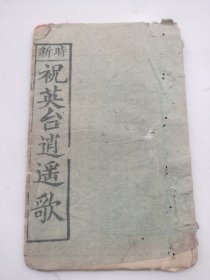 時新
祝英台逍遥歌